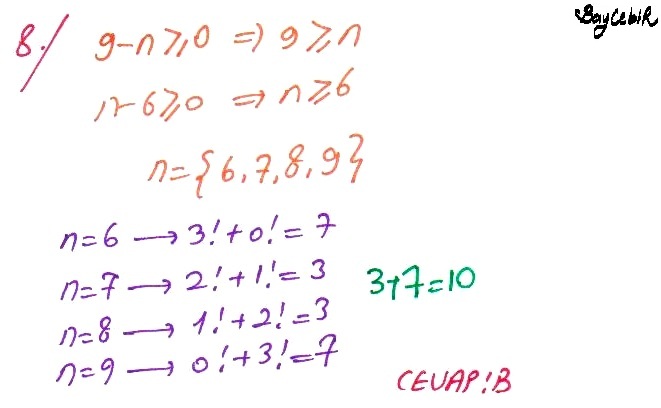 BayCebiR
8./ 9-n≥0 ⇒ 9≥n
n-6≥0 ⇒ n≥6
n={6,7,8,9}
n=6 → 3!+0!=7
n=7 → 2!+1!=3
3+7=10
n=8 → 1!+2!=3
n=9 → 0!+3!=7
CEVAP:B